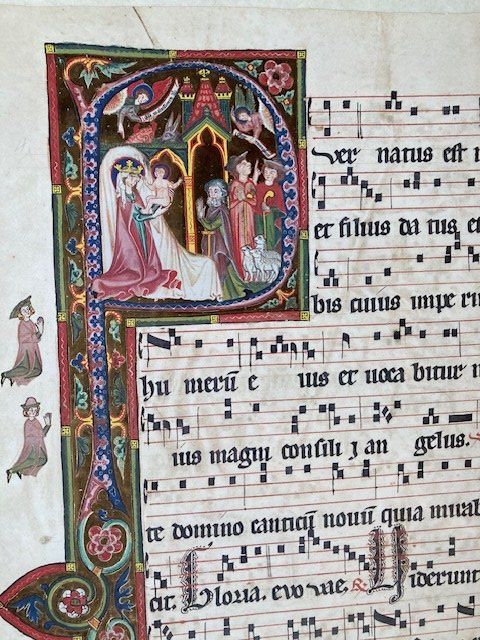 P
uer natus est n
et filius da tus, et
bis cuius impe riu
hu merū e ius et uoca bitur n
ius magni consili j an gelus.
te domino canticū nouū quia mirab
cit. Gloria. evovae. Viderunt